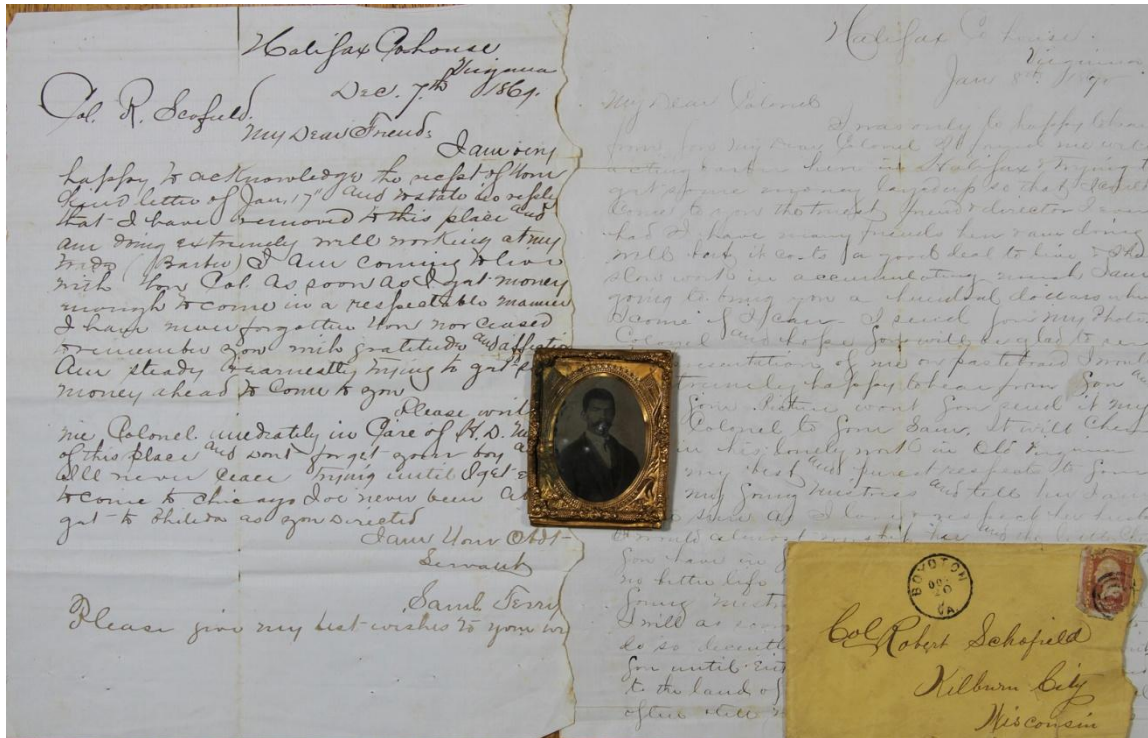 Halifax Cohouse
Virginia
Dec. 7th 1869.
Col. R. Scofield.
My Dear Friend:
I am very
happy to acknowledge the receipt of Your
Kind letter of Jan, 17" and to state in reply
that I have removed to this place and
am doing extremely well working at my
trade (Barber) I am coming to live
with You Col. as soon as I get money
enough to come in a respectable manner
I have never forgotten You nor ceased
to remember you with gratitude and affection
Am steady & earnestly trying to get
money ahead to come to you
Please write
me Colonel imediately in Care of H. D.
of this place and dont forget your boy
Ill never cease trying until I get
to come to Chicago Ive never been
get to as you directed
I am Your Obdt
Servant
Saml. Terry
Please give my best wishes to your
Halifax C. house.
Virginia
Jan 8th
My Dear Colonel
I was only to happy to hear
from you my dear Colonel
acting barber here in Halifax & trying to
get some money layed up so that I can
Come to you the truest friend & director I ever
had I have many friends here & am doing
well but it costs a good deal to live & its
slow work in accumulating much, I am
going to bring you a hundred dollars when
I come if I can. I send you my Photo
Colonel and hope you will be glad to see
representation of me on pasteboard I would
extremely happy to hear from you and
your Picture wont you send it me
Colonel to your Sam, it will cheer
in his lonely work in Old Virginia
my best and purest respects to your
my young mistress and tell her I am
as I love & respect her
I would almost worship her and the little
you have in
no better life
young mistress
I will as soon
do so decently
you until
to the land of
often
BOYDTON
VA.
Col. Robert Schofield
Kilburn City
Wisconsin